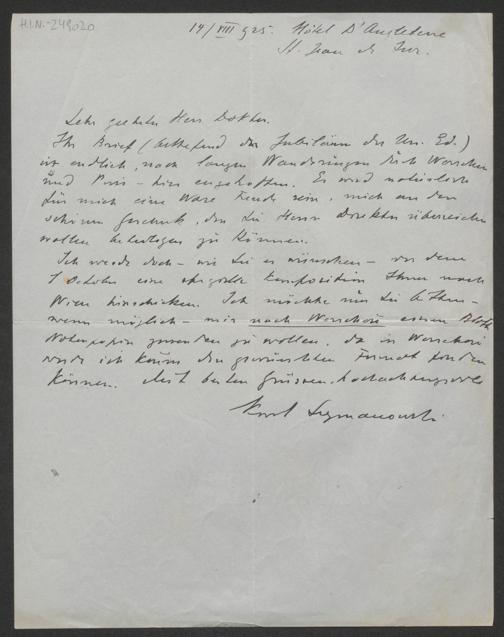 H.I.N.-249020
14/VIII 925. Hôtel D'Angleterre
St. Jean de Luz.
Sehr geehrter Herr Doktor.
Ihr Brief (betreffend das Jubiläum der Un. Ed.)
ist endlich, nach langen Wanderungen durch Warschau
und Paris – hier eingetroffen. Es wird natürlich
für mich eine Ware Freude sein, mich an dem
schönen Geschenk, den Sie Herrn Direktor überreichen
wollen beteiligen zu können.
Ich werde doch – wie Sie es wünschen – vor dem
1 October eine Composition Ihnen nach
Wien hinschicken. Ich möchte nun Sie bitten –
wenn möglich – mir nach Warschau einen Blatt
Notenpapier zusenden zu wollen, da in Warschau
werde ich kaum den gewünschten Format finden
können. Mit besten Grüssen, hochachtungsvoll
Karol Szymanowski